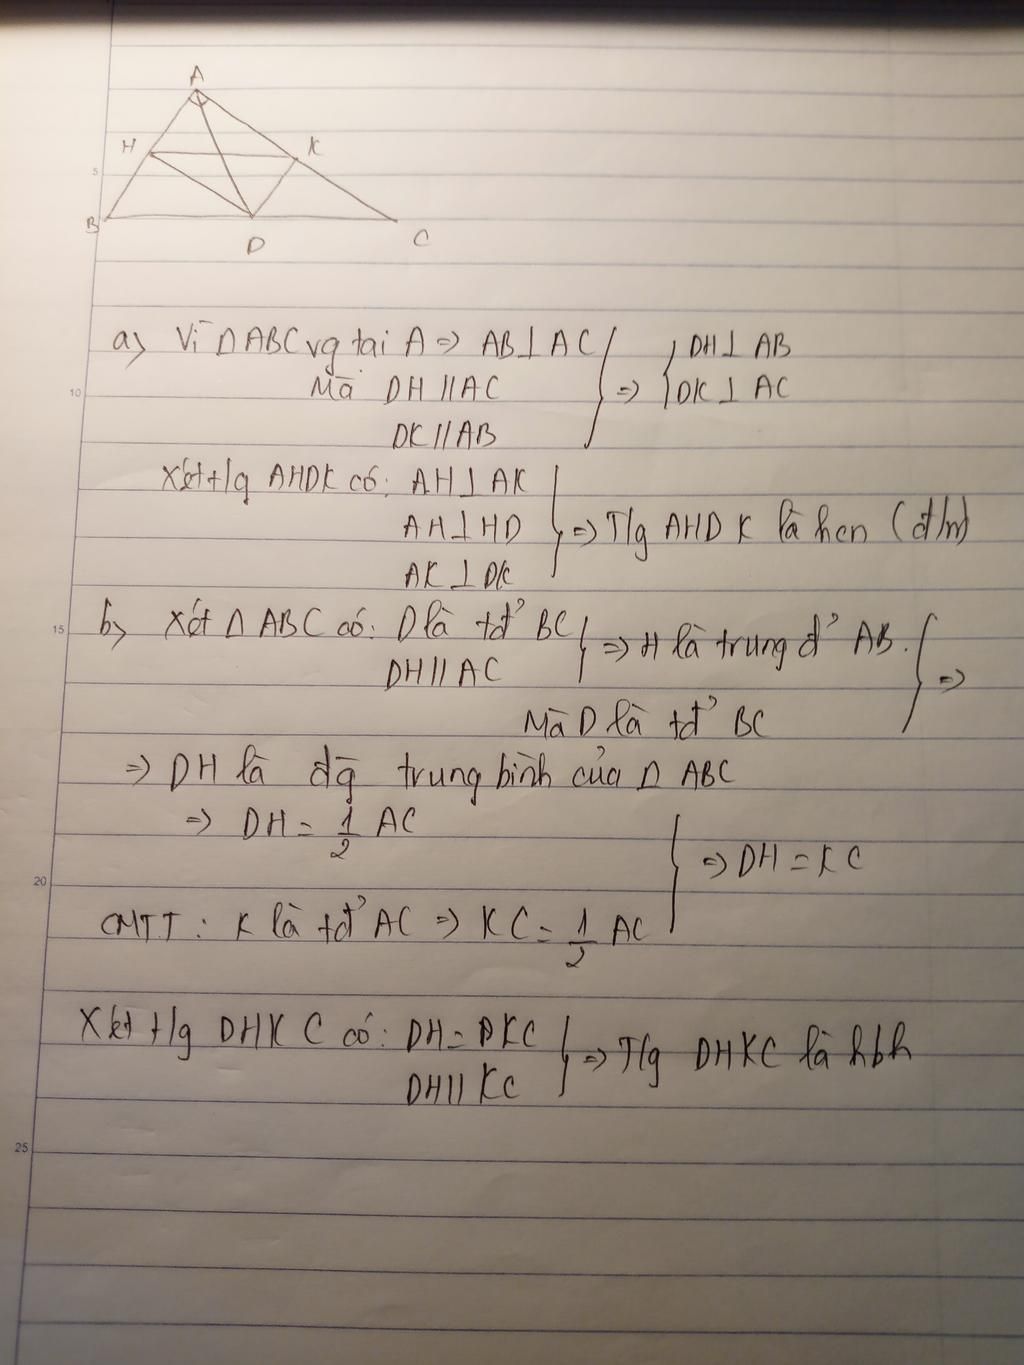 A
H
K
B
D
C
5
a) Vì Δ ABC vg tại A => AB ⊥ AC
Mà DH // AC => DH ⊥ AB
10
DK // AB DK ⊥ AC
Xét t/g AHDK có: AH ⊥ AK
AH ⊥ HD => T/g AHDK là hcn (đ/n)
AK ⊥ DK
15
b) Xét Δ ABC có: D là tđ' BC => H là trung đ' AB. =>
DH // AC
Mà D là tđ' BC
=> DH là đg trung bình của Δ ABC
=> DH = 1/2 AC
=> DH = KC
20
CMTT: K là tđ' AC => KC = 1/2 AC
Xét t/g DHKC có: DH = KC => T/g DHKC là hbh
DH // KC
25